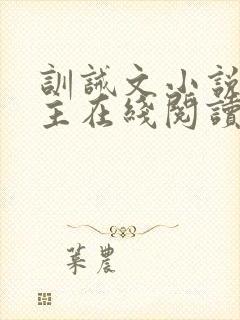 訓誡文小說
主在綫閱讀
葉農